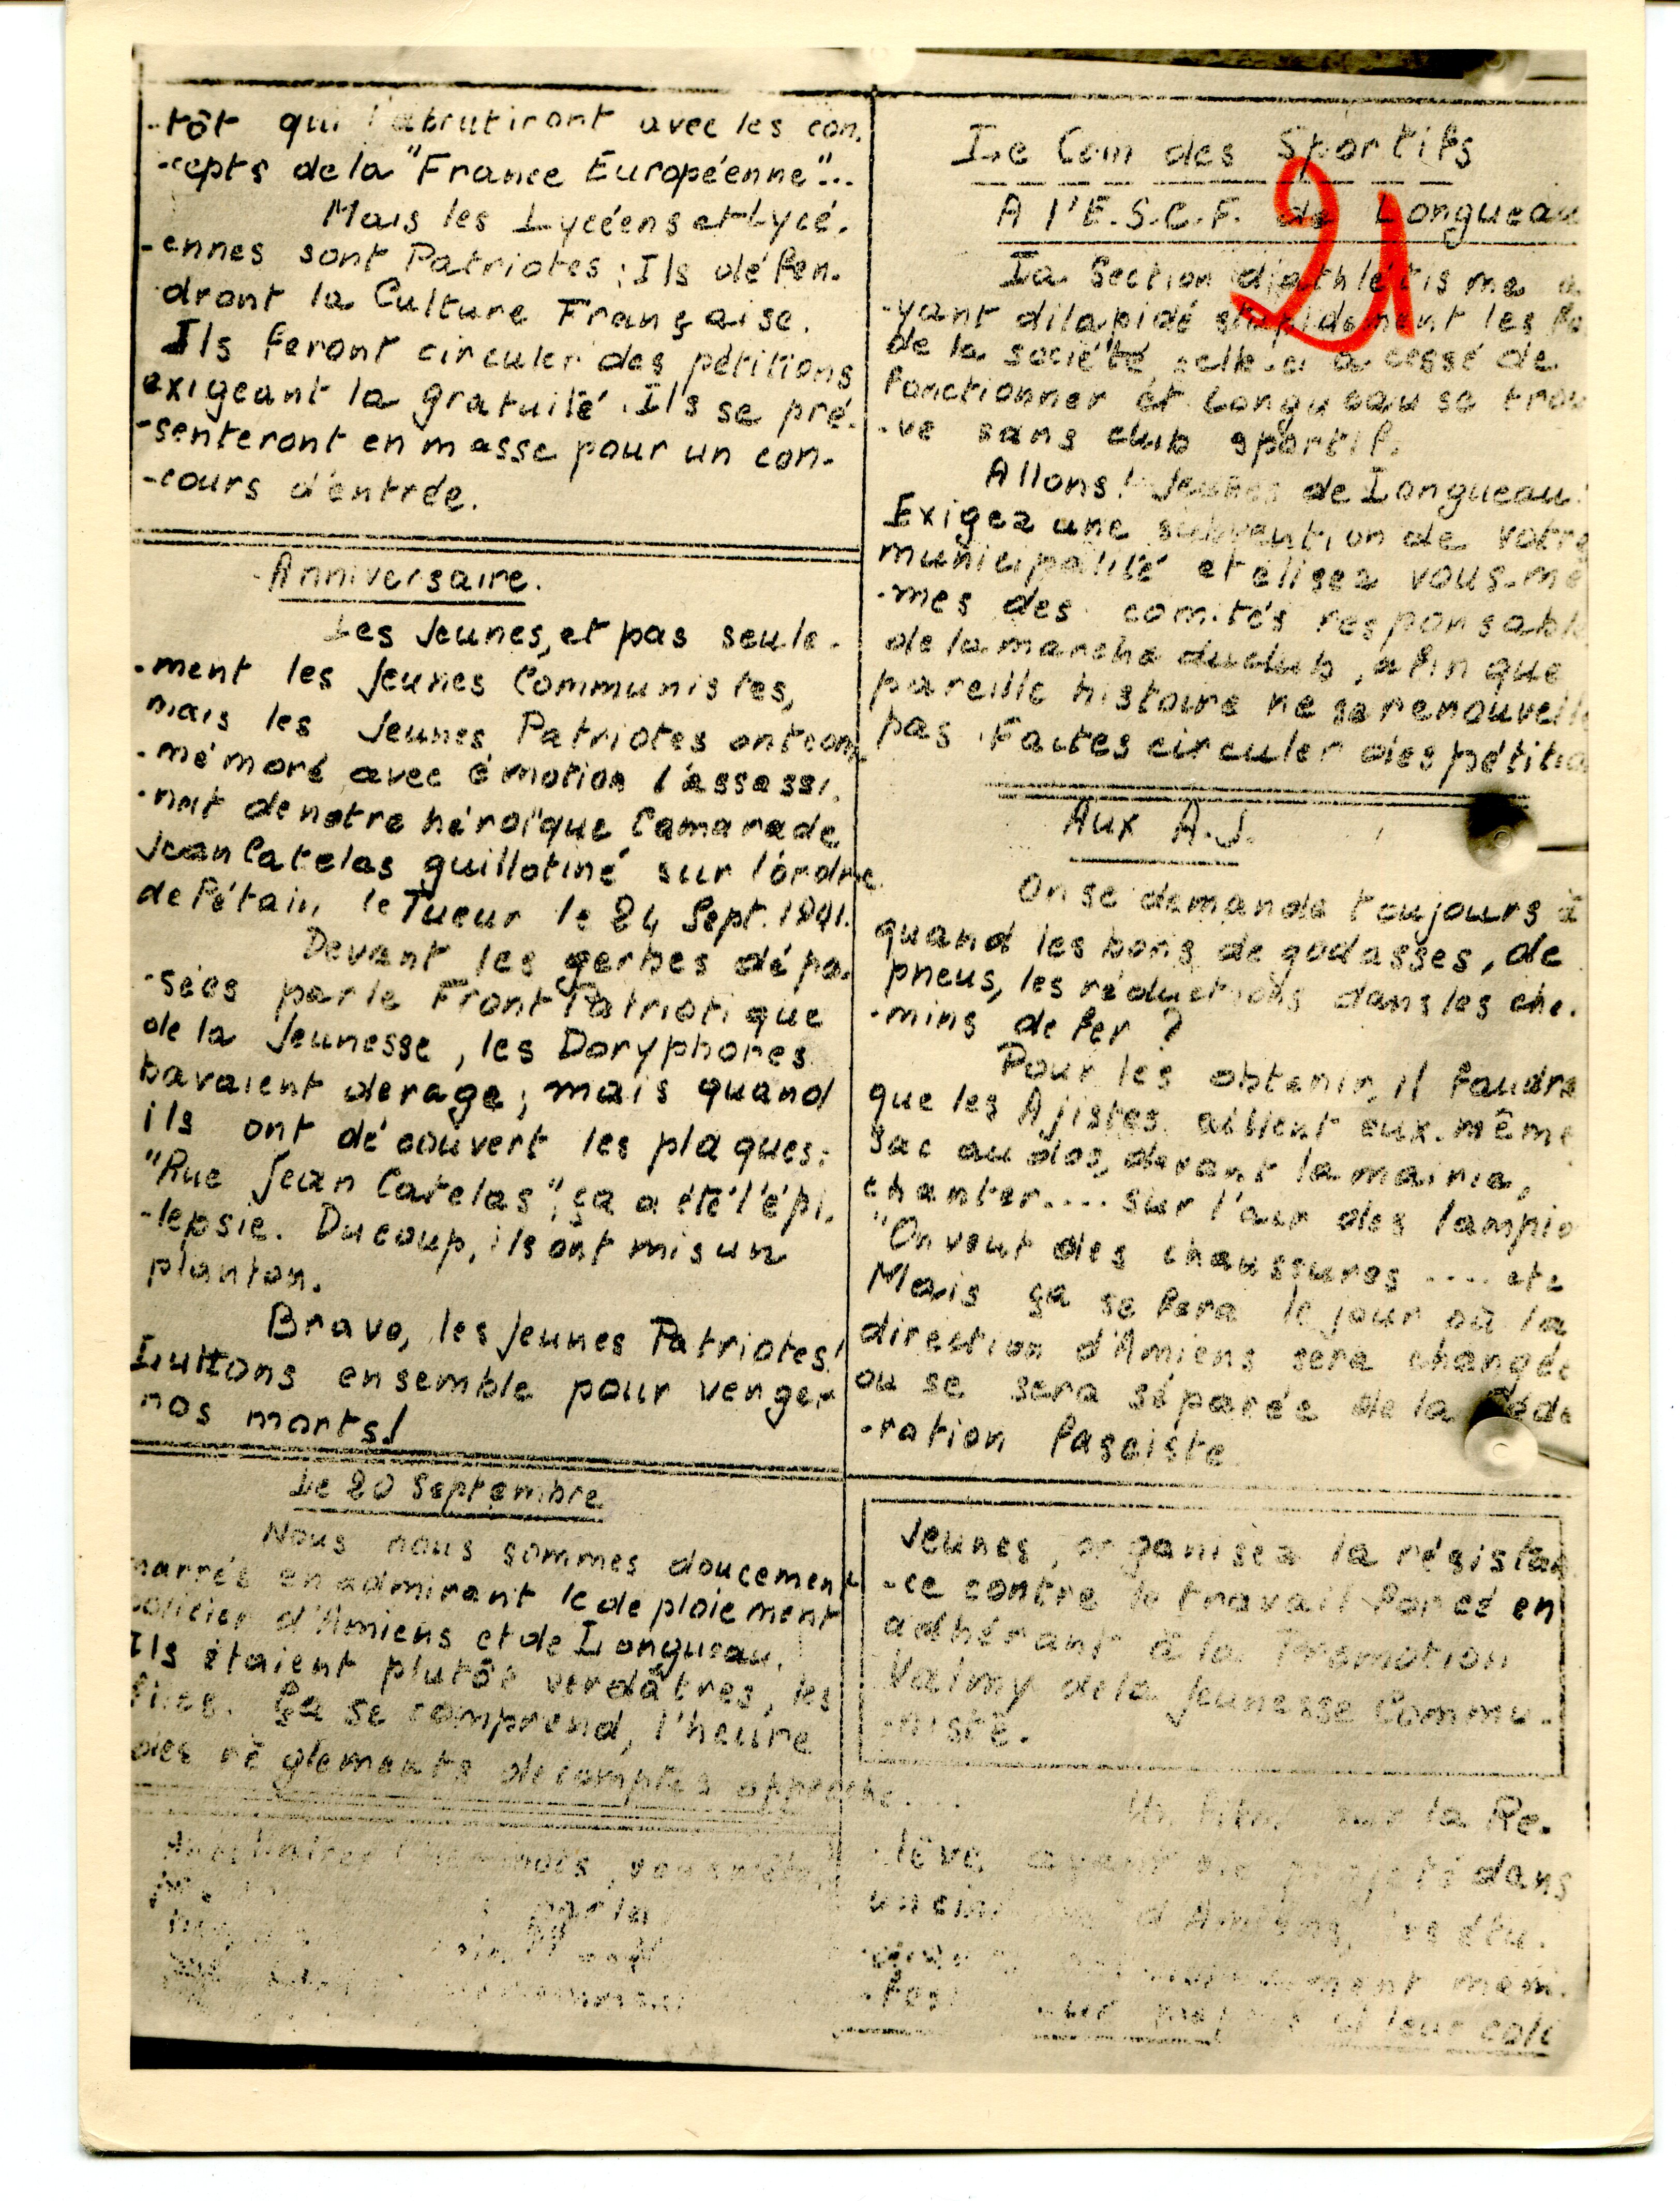 -tôt qui l'abrutiront avec les con.
-cepts de la "France Européenne"...
Mais les Lycéens et Lycé.
-ennes sont Patriotes ; Ils défen.
dront la Culture Française.
Ils feront circuler des pétitions
exigeant la gratuité. Ils se pré.
-senteront en masse pour un con.
-cours d'entrée.
Anniversaire.
Les Jeunes, et pas seule.
-ment les Jeunes Communistes,
mais les Jeunes Patriotes ont com
-mémoré avec émotion l'assassi.
-nat de notre héroïque Camarade
Jean Catelas guillotiné sur l'ordre
de Pétain le Tueur le 24 Sept. 1941.
Devant les gerbes dépo.
-sées par le Front Patriotique
de la Jeunesse, les Doryphores
bavaient de rage ; mais quand
ils ont découvert les plaques :
"Rue Jean Catelas", ça a été l'épi.
-lepsie. Du coup, ils ont mis un
planton.
Bravo, les Jeunes Patriotes !
Luttons ensemble pour venger
nos morts !
Le 20 Septembre
Nous nous sommes doucement
marrés en admirant le deploiement
policier d'Amiens et de Longueau.
Ils étaient plutôt verdâtres, les
flics. Ça se comprend, l'heure
des règlements de comptes approche....
par la
Le Coin des Sportifs
A l'E.S.C.F. de Longueau
21
La Section d'athlétisme a
-yant dilapidé stupidement les fo
de la société celle-ci a cessé de
fonctionner et Longueau se trou
-ve sans club sportif.
Allons ! Jeunes de Longueau !
Exigez une subvention de votre
municipalité et élisez vous-mê
-mes des comités responsable
de la marche du club, afin que
pareille histoire ne se renouvelle
pas. Faites circuler des pétitio
Aux A.J.
On se demande toujours à
quand les bons de godasses, de
pneus, les réductions dans les che.
-mins de fer ?
Pour les obtenir, il faudra
que les Ajistes aillent eux-même
sac au dos, devant la mairie,
chanter.... sur l'air des lampio
"On veut des chaussures .... etc
Mais ça se fera le jour où la
direction d'Amiens sera changée
ou se sera séparée de la Fédé
-ration fasciste
Jeunes, organisez la résistan
-ce contre le travail forcé en
adhérant à la Promotion
Valmy de la Jeunesse Commu.
-niste.
Un film sur la Re.
-lève ayant été projeté dans
un d'Amiens, les étu.
mani.
leur colè